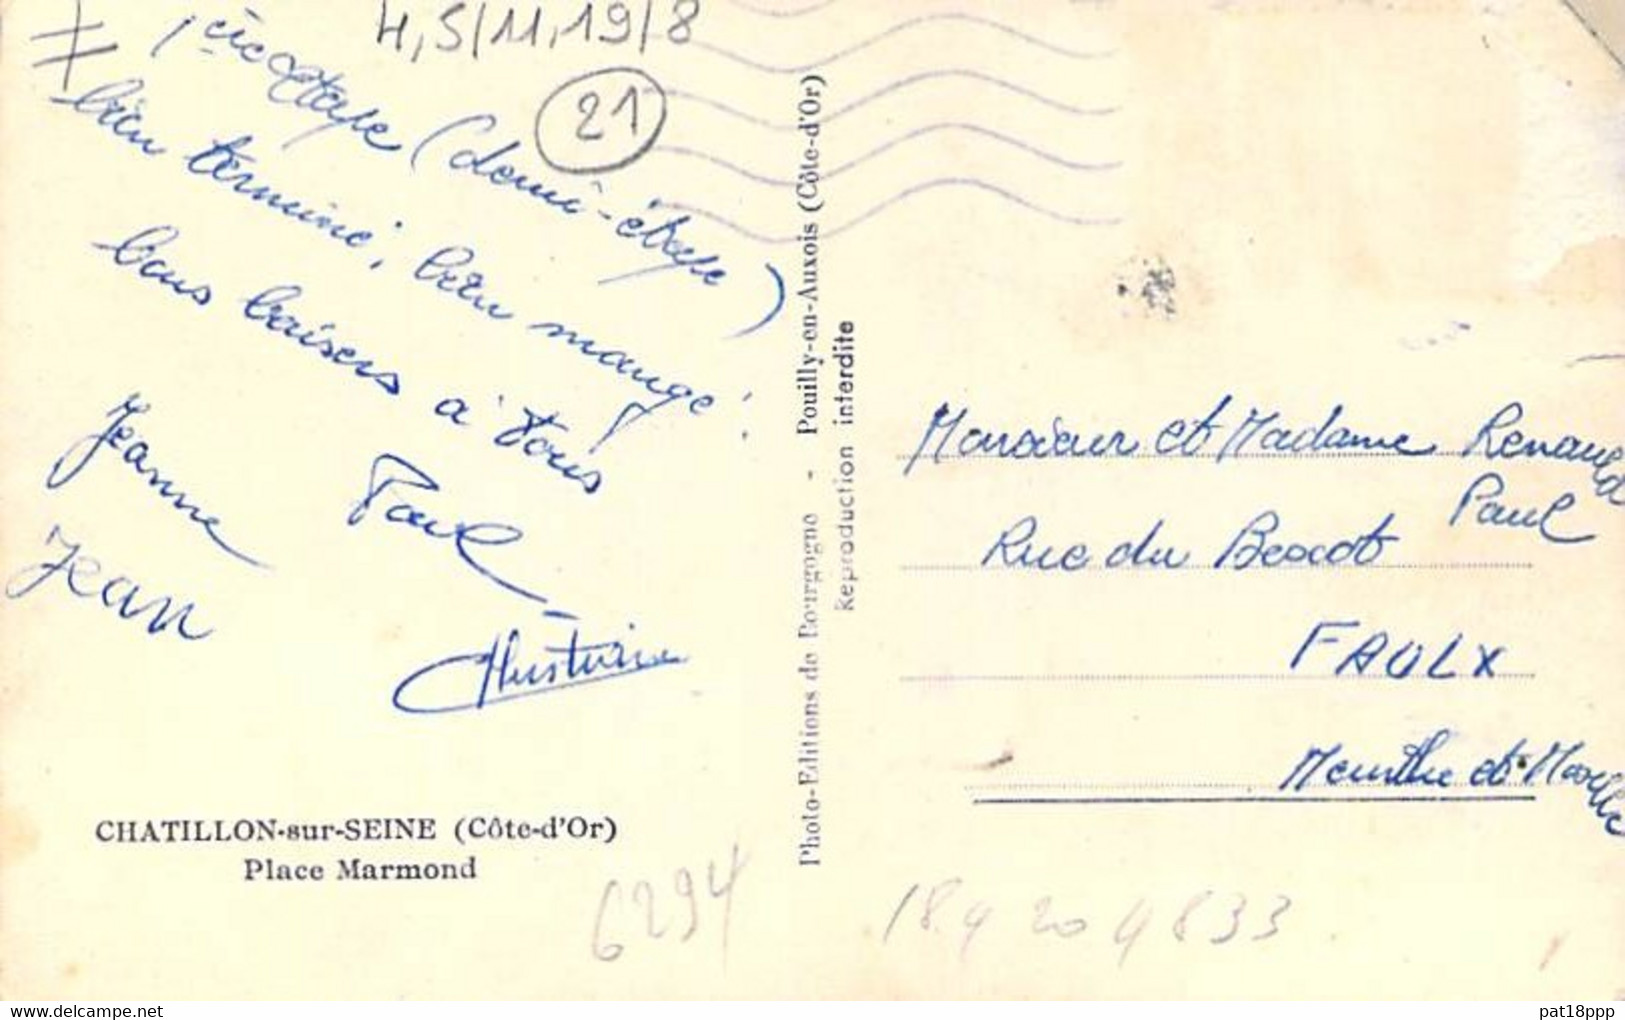 H,S/11,19/8
21
1ère étape (demi-étape)
bien terminé, bien mangé!
bons baisers à tous
Jeanne
Paul
Jean
Christiane
CHATILLON-sur-SEINE (Côte-d'Or)
Place Marmond
6294
Photo-Editions de Bourgogne - Pouilly-en-Auxois (Côte-d'Or)
Reproduction interdite
Monsieur et Madame Renauld
Paul
Rue du Bescot
FAULX
Meurthe et Moselle
18.9 20 9833
pat18ppp